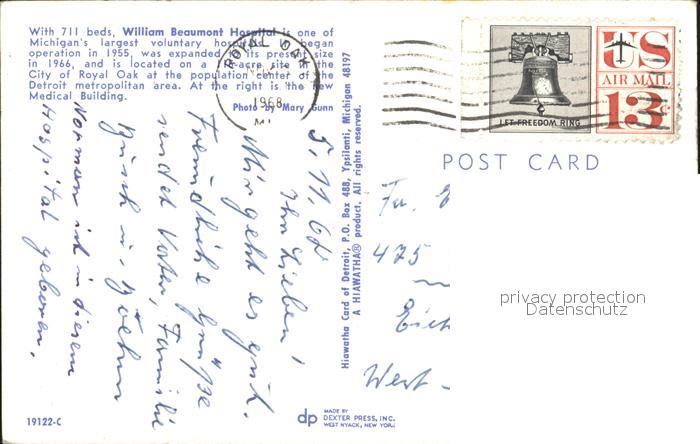 With 711 beds, William Beaumont Hospital is one of
Michigan's largest voluntary hospitals. It began
operation in 1955, was expanded to its present size
in 1966, and is located on a acre site in the
City of Royal Oak at the population center of the
Detroit metropolitan area. At the right is the new
Medical Building.
Photo by Mary Gunn
ROYAL OAK
1968
LET FREEDOM RING
US
AIR MAIL
13c
POST CARD
5. 11. 68
Ihr Lieben!
Mir geht es gut.
Freundliche Grüße
sendet Vater, Familie
Busch u.
Norman ist in diesem
Hospital geboren.
Hiawatha Card of Detroit, P.O. Box 488, Ypsilanti, Michigan 48197
A HIAWATHA® product. All rights reserved.
475
West-
privacy protection
Datenschutz
19122-C
dp
MADE BY
DEXTER PRESS, INC.
WEST NYACK, NEW YORK